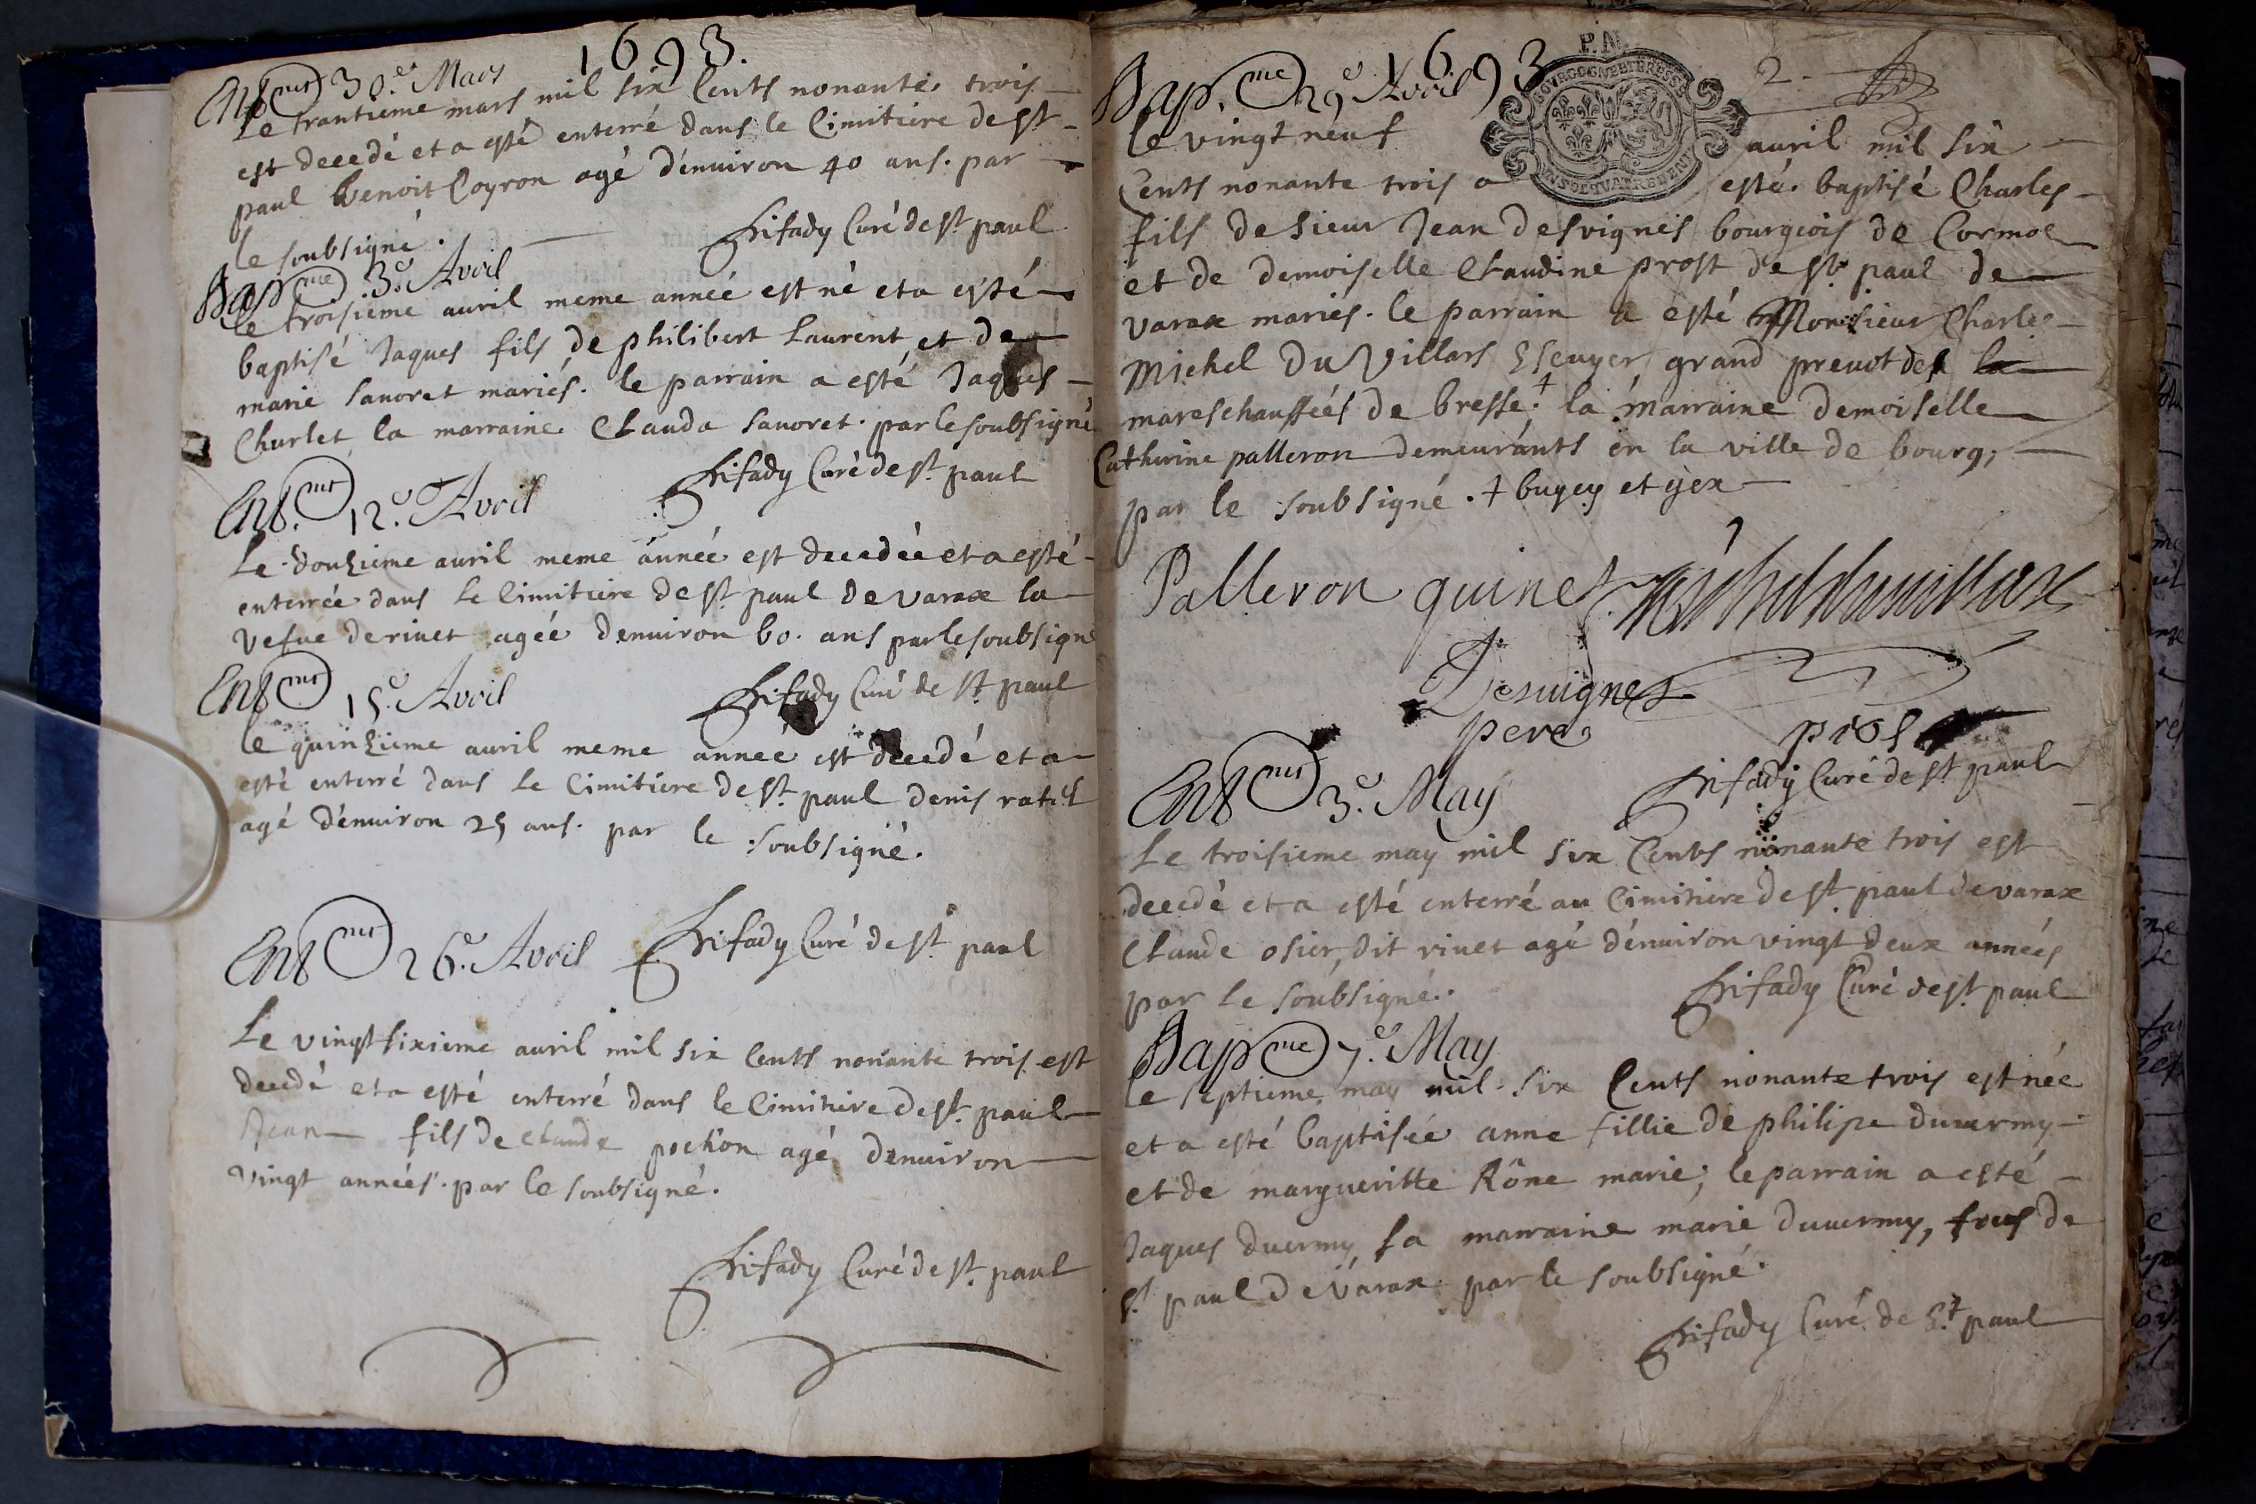 1693.
Ent.mt 30.e Mars
Le trantieme mars mil six Cents nonante trois
est decedé et a esté enterré dans le Cimitiere de St
paul benoit Coyron agé d'enuiron 40 ans. par
le soubsigné.
Curé de St paul
Bap.me 3.e Avril
le troisieme auril meme année est né et a esté
baptisé Jaques fils de philibert Laurent et de
marie sauoret mariés. le parrain a esté Jaques
Churlet, la marraine Clauda sauoret. par le soubsigné
Curé de St. paul
Ent.mt 12.e Avril
Le douzieme auril meme année est decedée et a esté
enterrée dans Le Cimitiere de St. paul de varax la
vefue de riuet agée denuiron 60. ans par le soubsigné
Curé de St. paul
Ent.mt 15.e Avril
le quinzieme auril meme année est decedé et a
esté enterré dans Le Cimitiere de St. paul denis
agé d'enuiron 25 ans. par le soubsigné.
Curé de St. paul
Ent.mt 26.e Avril
Le vingt sixieme auril mil six Cents nonante trois est
decedé et a esté enterré dans le Cimitiere de St. paul
Jean fils de Claude pochon agé denuiron
vingt années. par le soubsigné.
Curé de St. paul
1693
P.M.
2.
Bap.me 29.e Avril
le vingt neuf auril mil six
Cents nonante trois a esté baptisé Charles
fils de sieur Jean desvignes bourgeois de Cormoz
et de demoiselle Claudine prost de St. paul de
varax mariés. le parrain a esté Monsieur Charles
Michel Du Villars Escuyer grand preuot des la
mareschaussées de bresse. + la marraine demoiselle
Catherine palleron demeurants en la ville de bourg,
par le soubsigné. + bugey et gex
Palleron quinet Michel duuillars
Desuignes
pere prost
Curé de St. paul
Ent.mt 3.e May
Le troisieme may mil six Cents nonante trois est
decedé et a esté enterré au Cimitiere de St. paul de varax
Claude osier, dit riuet agé d'enuiron vingt deux années
par Le soubsigné.
Curé de St. paul
Bap.me 7.e May
le septieme may mil six Cents nonante trois est née
et a esté baptisée anne fillie de philipe duuermy
et de margueritte Rône marie, le parrain a esté
Jaques duermy, la marraine marie duuermy, tous de
St. paul de Varax par le soubsigné.
Curé de St. paul